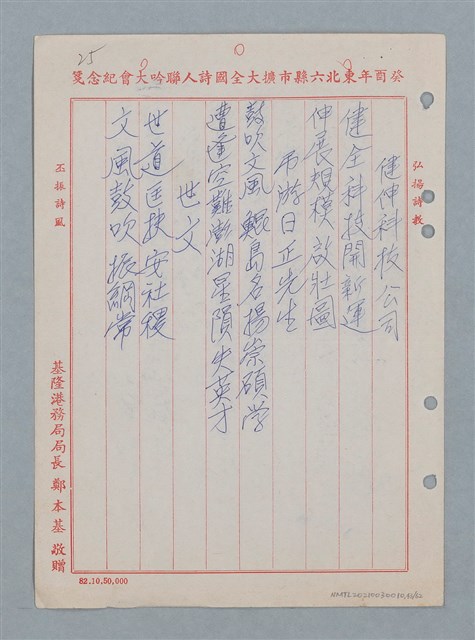 25
癸酉年東北六縣市擴大全國詩人聯吟大會紀念箋
弘揚詩教
健伸科技公司
健全科技開新運
伸展規模啟壯圖
吊游日正先生
鼓吹文風鯤島名揚崇碩学
遭逢空難澎湖星隕失英才
世文
世道匡扶安社稷
文風鼓吹振綱常
丕振詩風
基隆港務局局長 鄭本基 敬贈
82.10.50,000